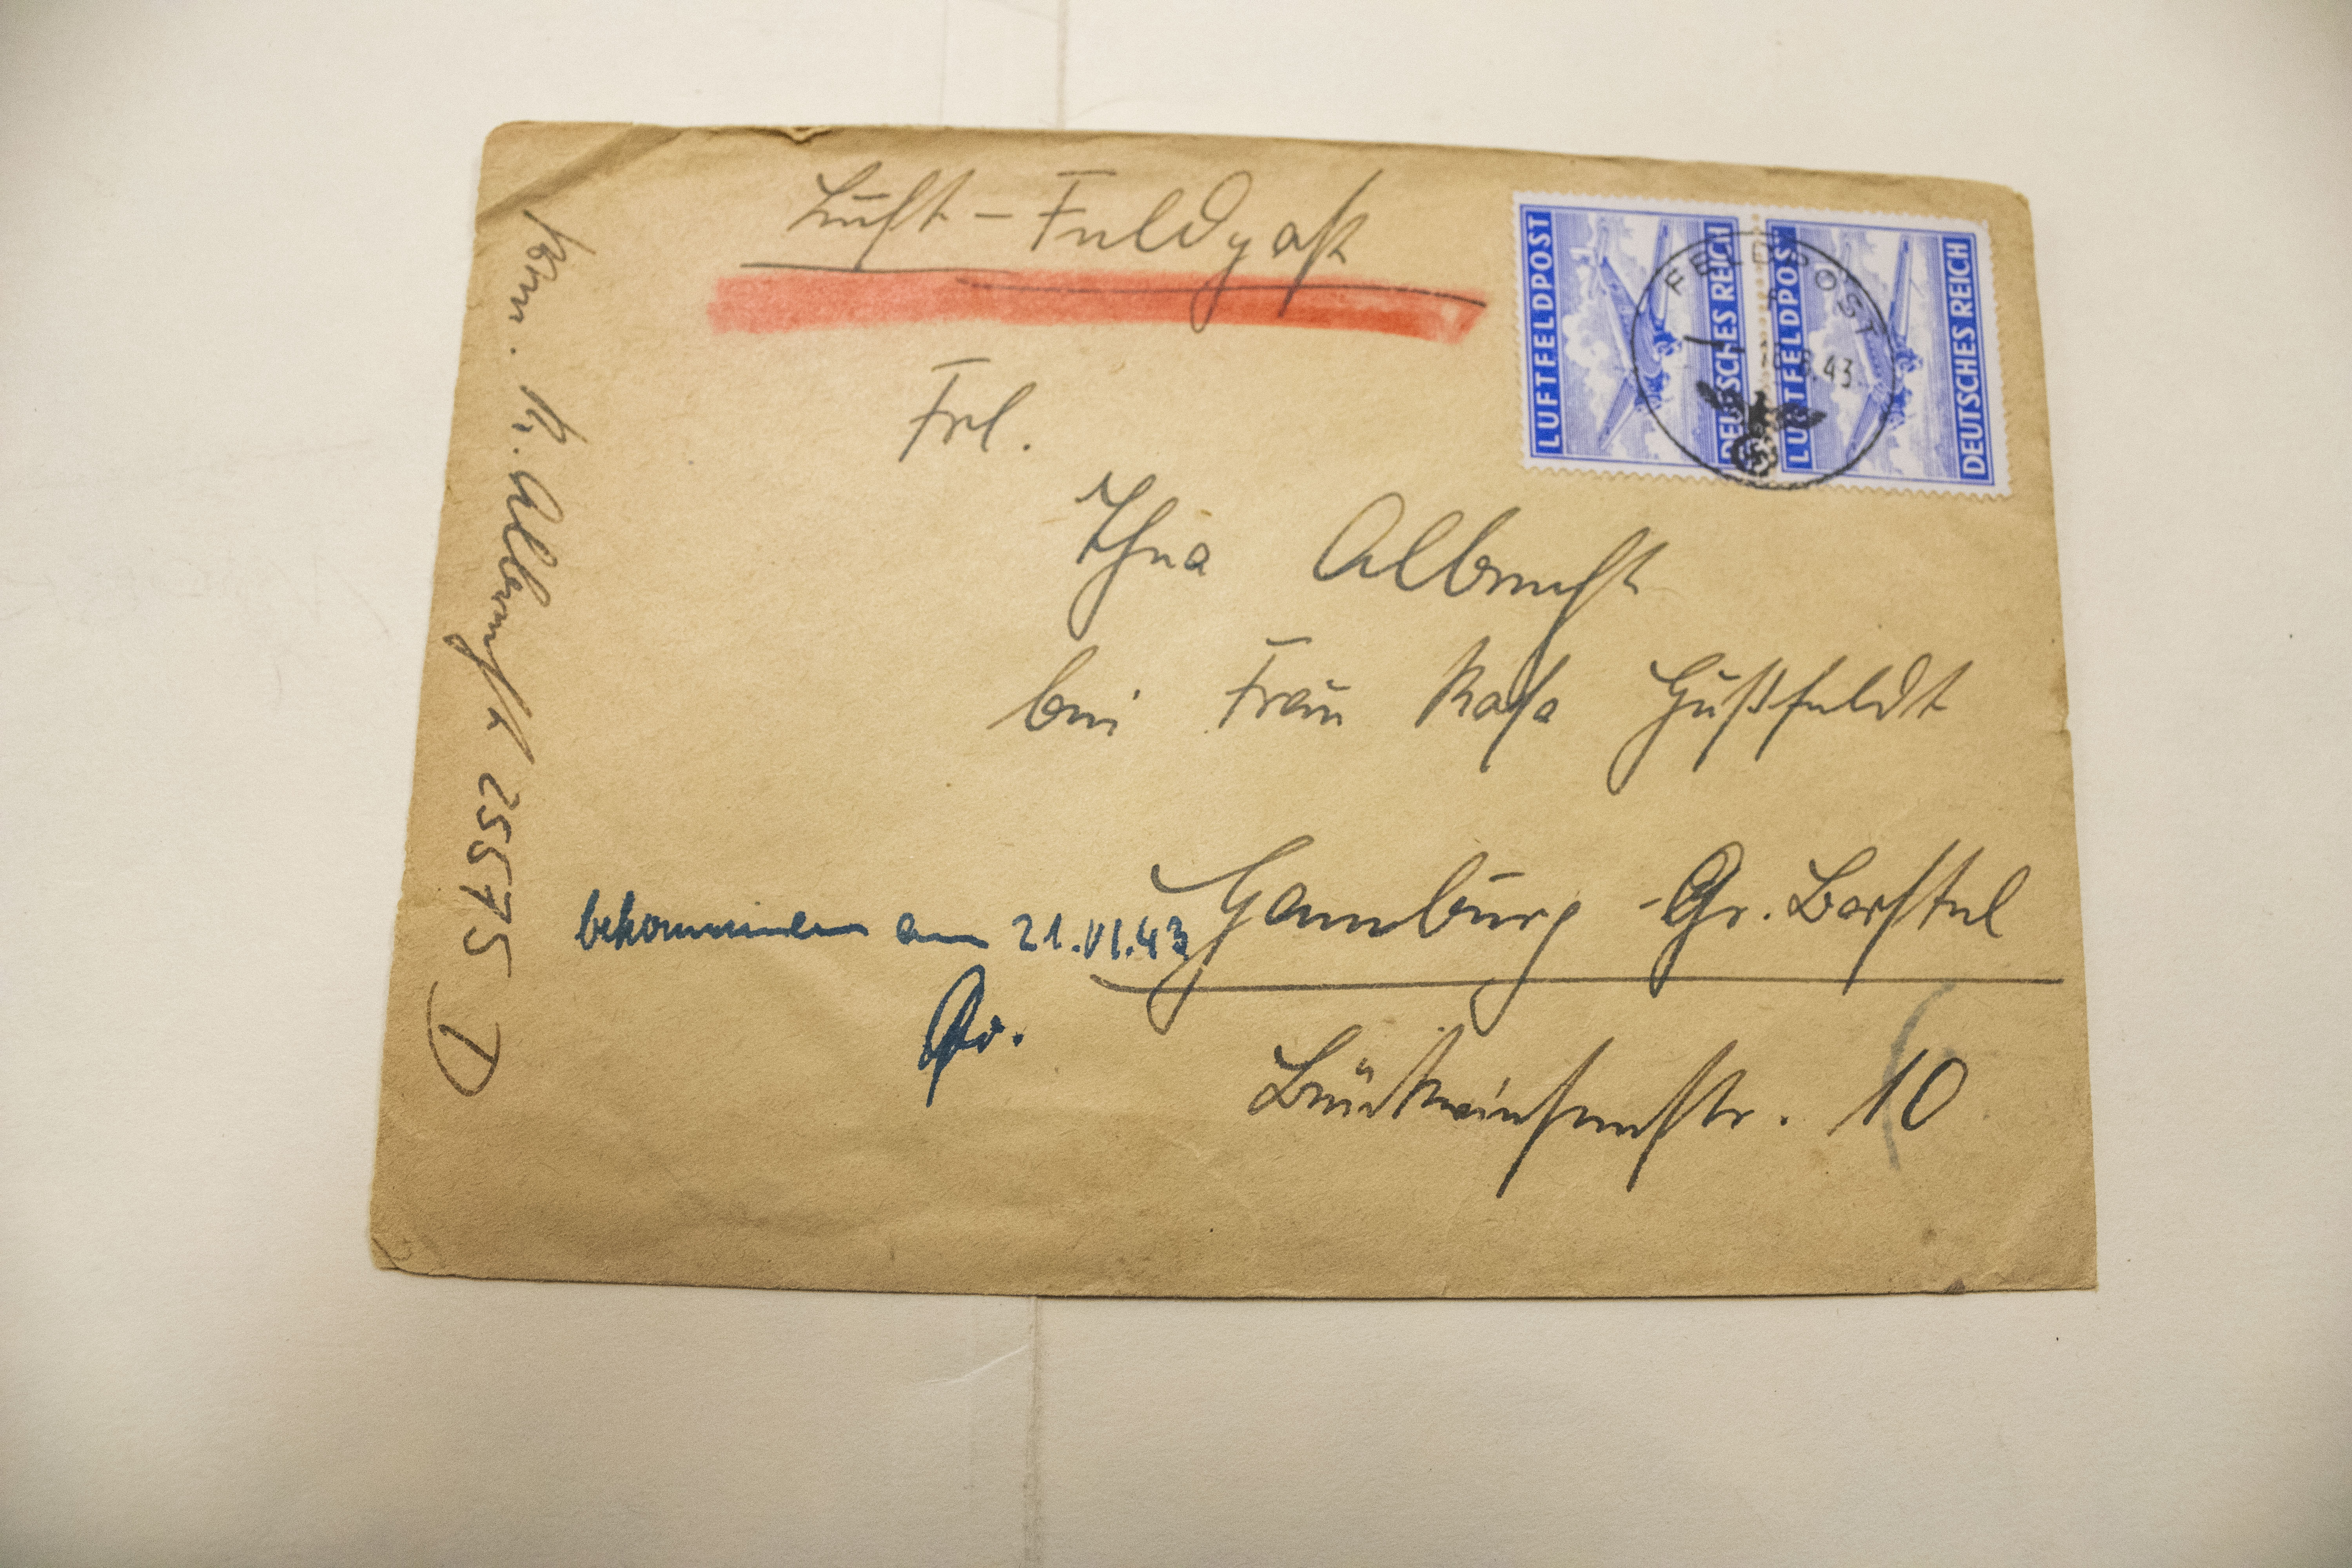 Luft-Feldpost
LUFTFELDPOST DEUTSCHES REICH
LUFTFELDPOST DEUTSCHES REICH
FELDPOST
.43
Frl.
Thea Albrecht
bei Frau Rosa Güßfeldt
Hamburg - Gr. Borstel
Brückwiesenstr. 10
bekommen am 21.VI.43
Albrecht 25575 D